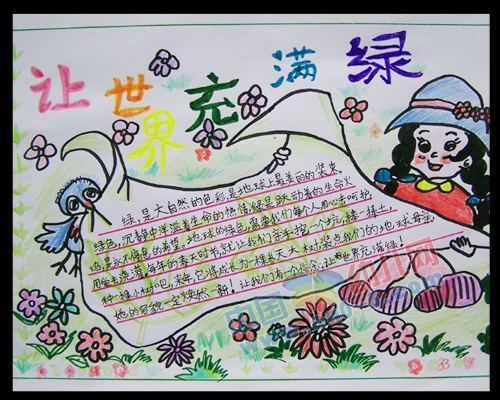 让世界充满绿
绿,是大自然的色彩,是地球上最美丽的装束。
绿是跃动着的生命火
绿色,沉静中洋溢着生命的热情。
绿色,需要我们每个人用心去呵护
遍是永不停息的希望。地球的
用爱去浇灌,每年的春天时长,就让我们亲手挖一个坑,捧一抔土,
种一棵小树吧,未来,它将成长为一棵参天大树,装点我们的地球母亲
她的容貌一定焕然一新!让我们有一个信念:让世界充满绿!